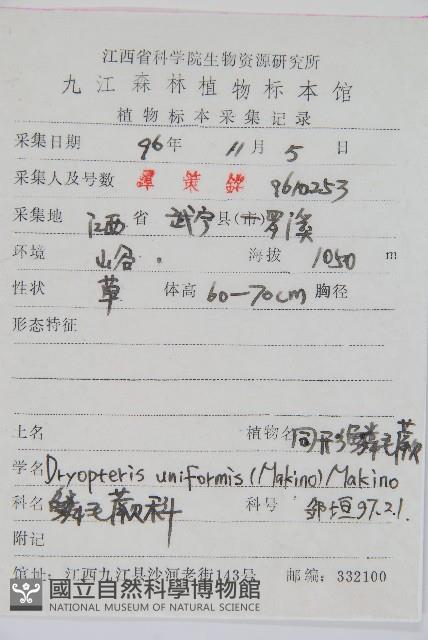 江西省科学院生物资源研究所
九江森林植物标本馆
植物标本采集记录
采集日期 96年 11月 5日
采集人及号数 譚策銘 9610253
采集地 江西省 武宁县(市)罗溪
环境 山谷. 海拔 1050 m
性状 草 体高 60—70cm 胸径
形态特征
土名 植物名 同形鳞毛蕨
学名 Dryopteris uniformis (Makino) Makino
科名 鳞毛蕨科 科号 邹垣 97.2.1.
附记
馆址:江西九江县沙河老街143号 邮编:332100
國立自然科學博物館
NATIONAL MUSEUM OF NATURAL SCIENCE